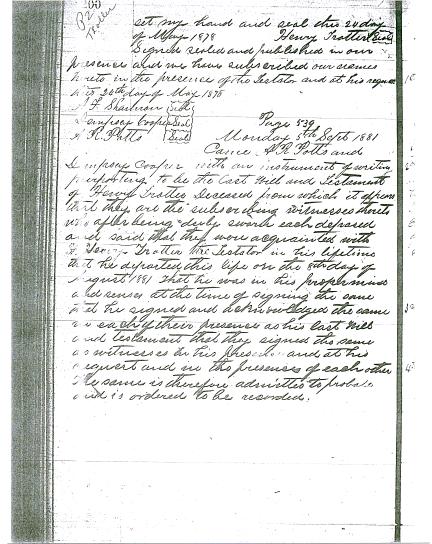 205
P2
Trotter
set my hand and seal this 24 day
of May 1878 Henry Trotter Seal
Signed sealed and published in our
presence and we have subscribed our names
hereto in the presence of the Testator and at his request
this 24th day of May 1878
F Shannon Seal
Dempsey Cooper Seal
A R Potts Seal
Page 539
Monday 5th Sept 1881
Came A.R Potts and
Dempsey Cooper with an instrument of writing
purporting to be the last Will and Testament
of Henry Trotter Deceased from which it appears
that they are the subscribing witnesses thereto
who after being duly sworn each deposed
and said that they were acquainted with
Henry Trotter the Testator in his lifetime
that he departed this life on the 8th day of
August 1881 That he was in his proper mind
and senses at the time of signing the same
that he signed and acknowledged the same
in each of their presence as his last Will
and testament that they signed the same
as witnesses in his presence and at his
request and in the presences of each other
The same is therefore admitted to probate
and is ordered to be recorded.